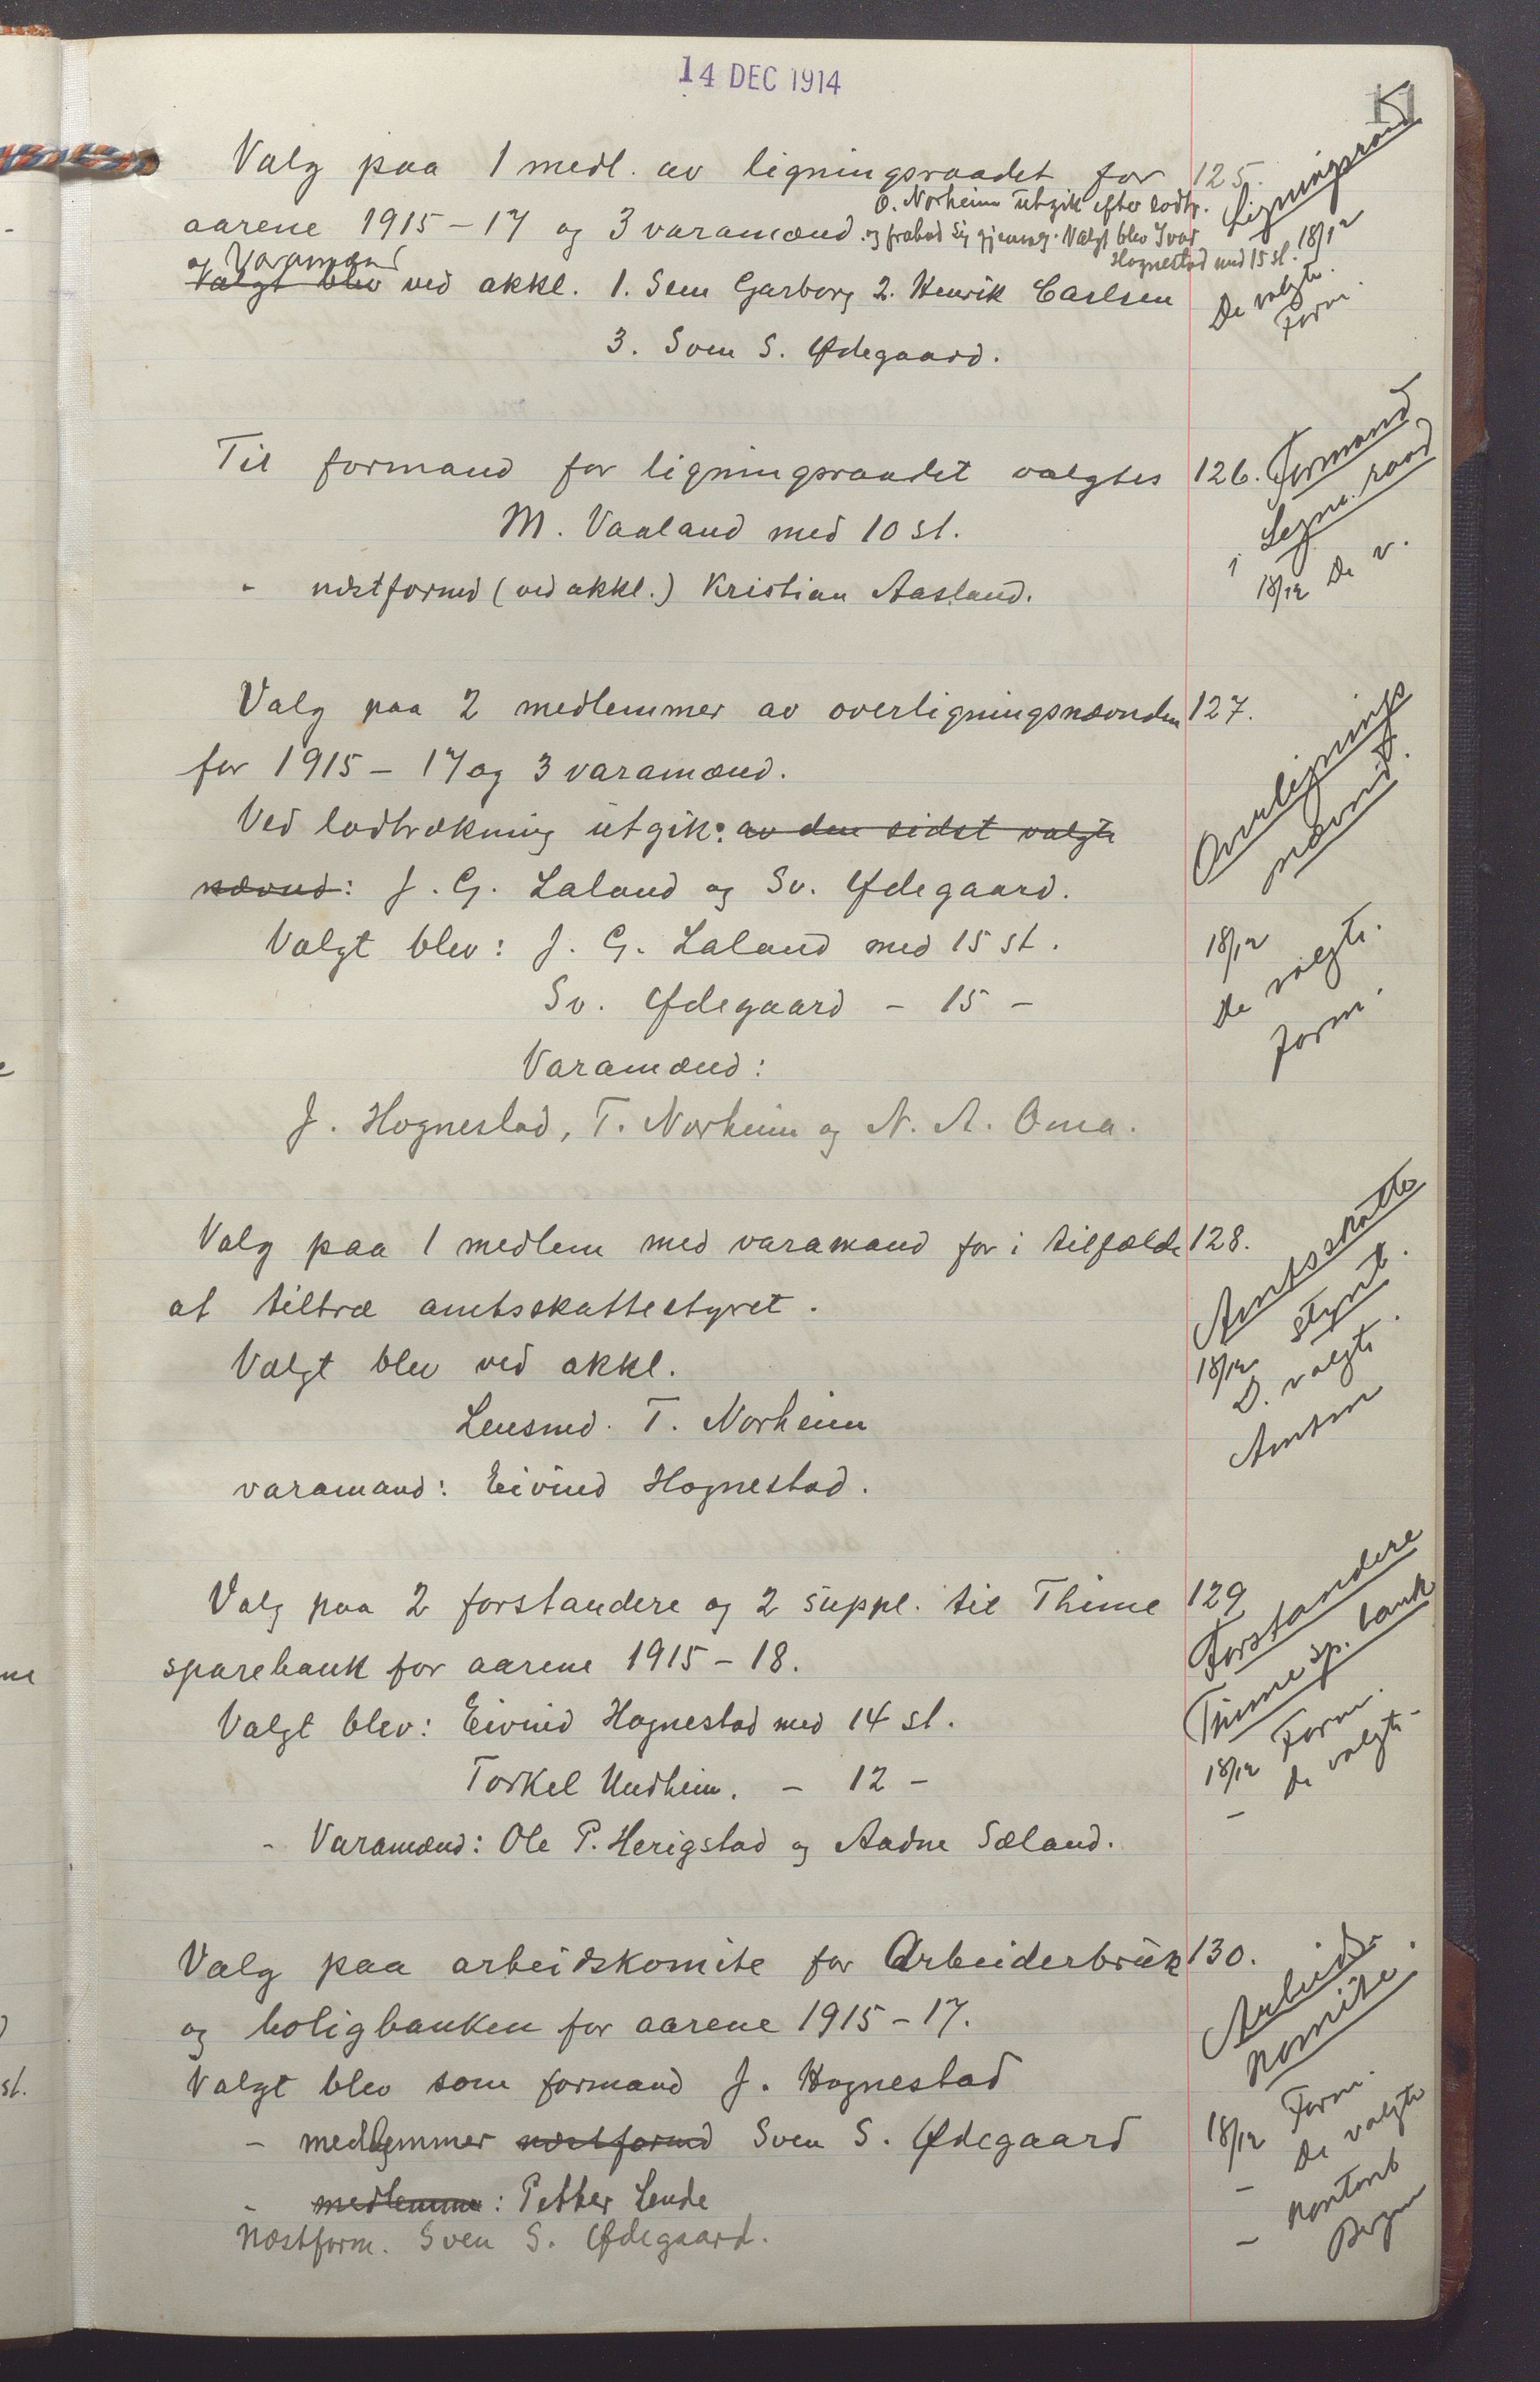 14 DEC 1914
Valg paa 1 medl. av ligningsraadet for 125. Ligningsraad
O. Norheim utgik efter lodtr.
aarene 1915-17 og 3 varamænd. og frabad sig gjenvalg. Valgt blev Ivar
Hognestad med 15 st. 18/12
og Varamænd
Valgt blev ved akkl. 1. Sem Garborg 2. Henrik Carlsen De valgte.
Form.
3. Sven S. Ødegaard.
Til formand for ligningsraadet valgtes 126. Formand
M. Vaaland med 10 st. i Legn. raad
- næstformd (ved akkl.) Kristian Aasland. 18/12 De v.
Valg paa 2 medlemmer av overligningsnævnden 127. Overlignings
for 1915-17 og 3 varamænd. nævnd.
Ved lodtrækning utgik: av den sidst valgte
nævnd: J. G. Laland og Sv. Ødegaard.
Valgt blev: J. G. Laland med 15 st. 18/12
Sv. Ødegaard - 15 - De valgte.
Varamænd: Form.
J. Hognestad, T. Norheim og N. A. Oma.
Valg paa 1 medlem med varamand for i tilfælde 128. Amtsskatte
at tiltræ amtsskattestyret. styret.
Valgt blev ved akkl. 18/12 D. valgte.
Lensmd. T. Norheim Amtm
varamand: Eivind Hognestad.
Valg paa 2 forstandere og 2 suppl. til Thime 129 Forstandere
sparebank for aarene 1915-18. Thime sp. bank
Valgt blev: Eivind Hognestad med 14 st. 18/12 Form.
Torkel Undheim. - 12 - - de valgte-
- Varamænd: Ole P. Herigstad og Aadne Sæland.
Valg paa arbeidskomite for Arbeiderbruk 130. Arbeids-
og boligbanken for aarene 1915-17. komite.
Valgt blev som formand J. Hognestad
- medlemmer næstformd Sven S. Ødegaard 18/12 Form.
- De valgte
- medlemmer: Petter Lende
- Kontoret
Næstform. Sven S. Ødegaard.